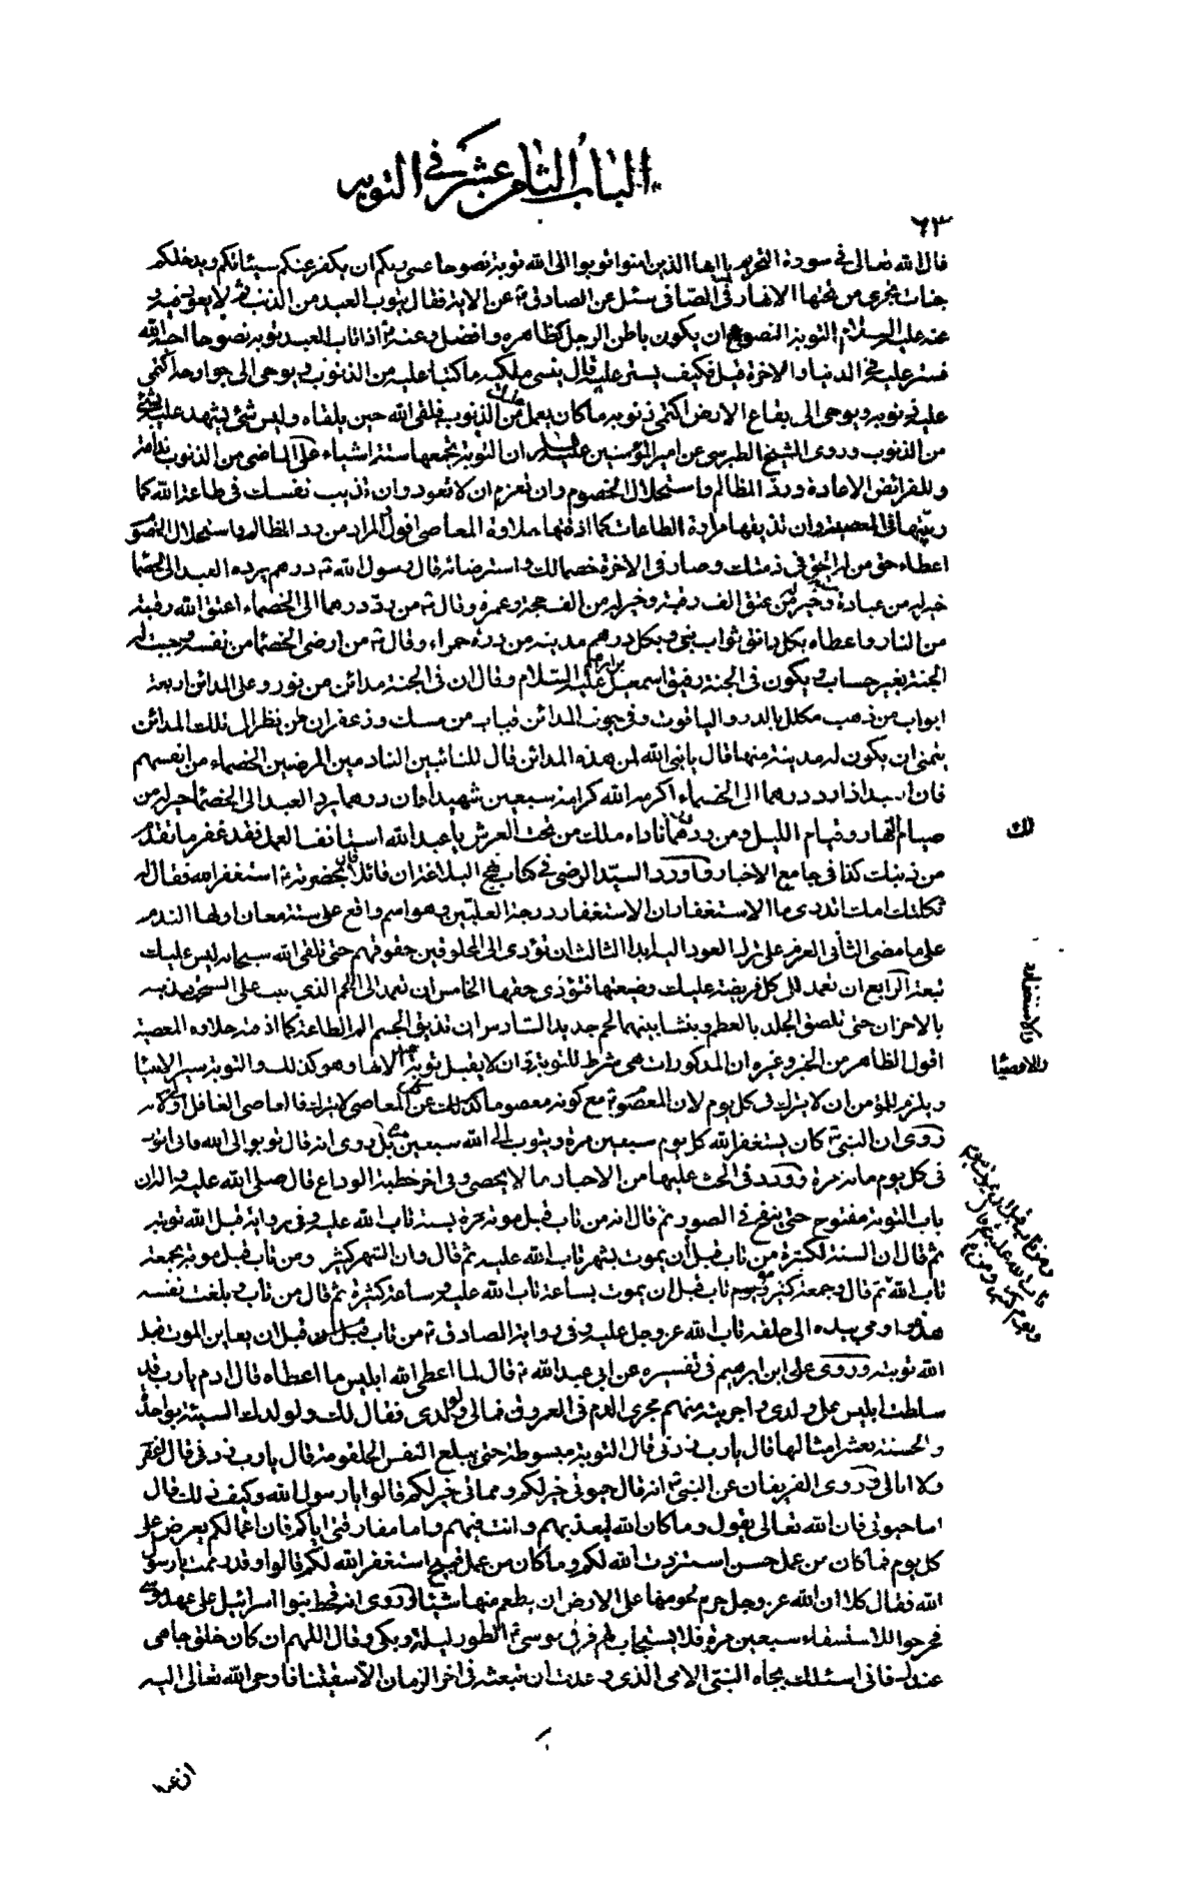 الباب الثامن عشر في التوبه
٦٣
قال الله تعالى في سورة التحريم يا ايها الذين امنوا توبوا الى الله توبة نصوحا عسى ربكم ان يكفر عنكم سيئاتكم ويدخلكم
جنات تجري من تحتها الانهار في الصافي سئل عن الصادق ع عن الاية فقال يتوب العبد من الذنب ثم لا يعود فيه و
عنه عليه السلام التوبة النصوح ان يكون باطن الرجل كظاهره وافضل وعنه ع اذا تاب العبد توبة نصوحا احبه الله
فستر عليه في الدنيا والاخرة قيل فكيف يستر عليه قال ينسى ملكيه ما كتبا عليه من الذنوب ويوحى الى جوارحه اكتمي
عليه ذنوبه ويوحى الى بقاع الارض اكتمي ذنوبه ما كان يعمل عليك من الذنوب فيلقى الله حين يلقاه وليس شئ يشهد عليه بشئ
من الذنوب وروى الشيخ الطبرسي عن امير المؤمنين عليه السلام ان التوبة تجمعها ستة اشياء على الماضي من الذنوب ندامة
وللفرائض الاعادة ورد المظالم واستحلال الخصوم وان تعزم ان لا تعود وان تذيب نفسك في طاعة الله كما
ربيتها في المعصية وان تذيقها مرارة الطاعات كما اذقتها حلاوة المعاصي اقول المراد من رد المظالم واستحلال الخصوم
اعطاء حق من له الحق في ذمتك وصار في الاخرة خصما لك واسترضائه قال رسول الله ص درهم يرده العبد الى الخصماء
خير له من عبادة وخير له من عتق الف رقبة وخير له من الف حجة وعمرة وقال ص من رد درهما الى الخصماء اعتق الله رقبته
من النار واعطاه بكل دانق ثواب نبي وبكل درهم مدينة من درة حمراء وقال ص من ارضى الخصماء من نفسه وجبت له
الجنة بغير حساب ويكون في الجنة رفيق اسمعيل بن ابراهيم عليه السلام وقال ان في الجنة مدائن من نور وعلى المدائن اربعة
ابواب من ذهب مكلل بالدر والياقوت وفي جوف المدائن قباب من مسك وزعفران من نظر الى تلك المدائن
يتمنى ان يكون له مدينة منها قال يا نبي الله لمن هذه المدائن قال للتائبين النادمين المرضين الخصماء من انفسهم
فان العبد اذا رد درهما الى الخصماء اكرمه الله كرامة سبعين شهيدا وان درهما يرد العبد الى الخصماء خير له من
صيام النهار وقيام الليل ومن رد درهما ناداه ملك من تحت العرش يا عبد الله استانف العمل فقد غفر ما تقدم
لك
من ذنبك كذا في جامع الاخبار واورد السيد الرضي في كتاب نهج البلاغة ان قائلا قال بحضرته ع استغفر الله فقال له
ثكلتك امك اتدري ما الاستغفار ان الاستغفار درجة العليين وهو اسم واقع على ستة معان اولها الندم
على ما مضى الثاني العزم على ترك العود اليه ابدا الثالث ان تؤدي الى المخلوقين حقوقهم حتى تلقى الله سبحانه ليس عليك
تبعة الرابع ان تعمد الى كل فريضة عليك وضيعتها فتؤدي حقها الخامس ان تعمد الى اللحم الذي نبت على السحت فتذيبه
بالاحزان حتى تلصق الجلد بالعظم وينشا بينهما لحم جديد السادس ان تذيق الجسم الم الطاعة كما اذقته حلاوة المعصية
والاستغفار
اقول الظاهر من الخبر وغيره ان المذكورات هي شرط للتوبة وان لا يقبل توبة الا بها وهو كذلك والتوبة سير الانبياء
والاوصياء
ويلزم للمؤمن ان لا يترك في كل يوم لان المعصوم ع مع كونه معصوما كذلك عن المعاصي لا يترك فاما صي الغافل اولى لانه
روى ان النبي ص كان يستغفر لله كل يوم سبعين مرة ويتوب الى الله سبعين مرة بل روى انه قال توبوا الى الله فاني اتوب
في كل يوم مائة مرة وورد في الحث عليها من الاخبار ما لا يحصى وفي اخر خطبة الوداع قال صلى الله عليه واله ان
باب التوبة مفتوح حتى ينفخ في الصور ثم قال انه من تاب قبل موته بسنة تاب الله عليه وفي رواية قبل الله توبته
ثم قال ان السنة لكثيرة من تاب قبل ان يموت بشهر تاب الله عليه ثم قال وان الشهر كثير ومن تاب قبل موته بجمعة
تاب الله ثم قال وجمعة كثيرة ومن تاب قبل ان يموت بساعة تاب الله عليه وساعة كثيرة ثم قال من تاب وبلغت نفسه
ومن تاب قبل ان يموت بيوم
تاب الله عليه ثم قال
ويوم كثير ومن تاب
هذه واومى بيده الى حلقه تاب الله عز وجل عليه وفي رواية الصادق ع من تاب قبل ان يعاين الموت قبل
الله توبته وروى علي ابن ابرهيم في تفسيره عن ابي عبد الله ع قال لما اعطى الله ابليس ما اعطاه قال ادم يا رب قد
سلطت ابليس على ولدي واجريته منهم مجرى الدم في العروق فما لي ولولدي فقال لك ولولدك السيئة بواحدة
والحسنة بعشر امثالها قال يا رب زدني قال التوبة مبسوطة حتى يبلغ النفس الحلقوم قال يا رب زدني قال اغفر
ولا ابالي وروى الفريقان عن النبي ص انه قال حيوتي خير لكم ومماتي خير لكم قالوا يا رسول الله وكيف ذلك قال
اما حيوتي فان الله تعالى يقول وما كان الله ليعذبهم وانت فيهم واما مفارقتي اياكم فان اعمالكم يعرض علي
كل يوم فما كان من عمل حسن استزدت الله لكم وما كان من عمل قبيح استغفر الله لكم قالوا وقد رممت يا رسول
الله فقال كلا ان الله عز وجل حرم لحومنا على الارض ان يطعم منها شيئا وروى انه قحط بنوا اسرائيل على عهد موسى
فخرجوا للاستسقاء سبعين مرة فلا يستجاب لهم فرقي موسى ع الطور ليلة وبكى وقال اللهم ان كان خلق جاهي
عندك فاني اسئلك بجاه النبي الامي الذي وعدت ان تبعثه في اخر الزمان الا سقيتنا فاوحى الله تعالى اليه